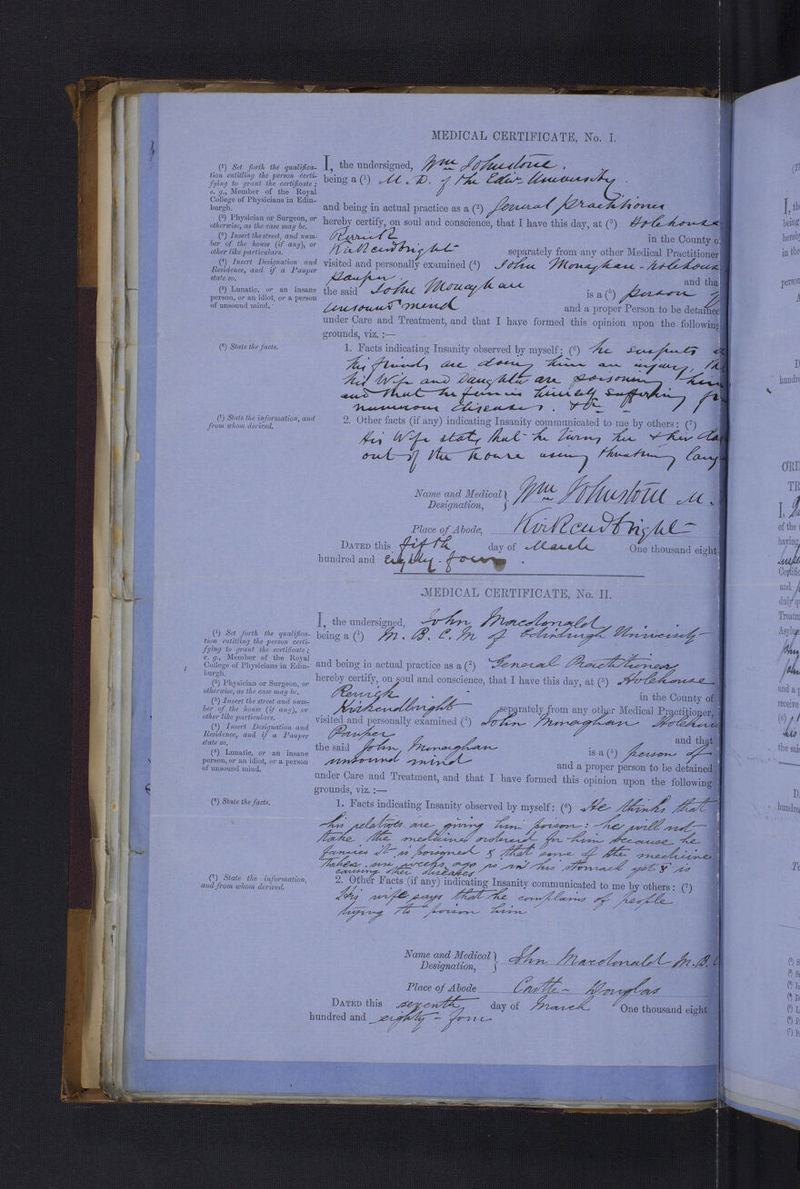 MEDICAL CERTIFICATE, No. I.
(¹) Set forth the qualifica-
tion entitling the person certi-
fying to grant the certificate;
e. g., Member of the Royal
College of Physicians in Edin-
burgh.
(²) Physician or Surgeon, or
otherwise, as the case may be.
(³) Insert the street, and num-
ber of the house (if any), or
other like particulars.
(⁴) Insert Designation and
Residence, and if a Pauper
state so.
(⁵) Lunatic, or an insane
person, or an idiot, or a person
of unsound mind.
(⁶) State the facts.
(⁷) State the information, and
from whom derived.
I, the undersigned, Wm Johnstone.
being a (¹) M. D. of the Edinr University
and being in actual practice as a (²) General practitioner
hereby certify, on soul and conscience, that I have this day, at (³) Holehouse
in the County o
Kirkcudbright separately from any other Medical Practitioner
visited and personally examined (⁴) John Monaghan - holehous
pauper and tha
the said John Monaghan is a (⁵) person of
unsound mind and a proper Person to be detained
under Care and Treatment, and that I have formed this opinion upon the following
grounds, viz. :—
1. Facts indicating Insanity observed by myself; (⁶) he suspects
his friends are doing him an injury, th
his Wife and Daughter are poisoning him
and that he fancies himself suffering fr
numerous diseases. &c -
2. Other facts (if any) indicating Insanity communicated to me by others; (⁷)
his Wife states that he turns her & her
out of the house using lang
Name and Medical Designation, } Wm Johnstone M.
Place of Abode, Kirkcudbright
DATED this fifth day of March One thousand eight
hundred and eighty-four.
MEDICAL CERTIFICATE, No. II.
(¹) Set forth the qualifica-
tion entitling the person certi-
fying to grant the certificate;
e. g., Member of the Royal
College of Physicians in Edin-
burgh.
(²) Physician or Surgeon, or
otherwise, as the case may be.
(³) Insert the street and num-
ber of the house (if any), or
other like particulars.
(⁴) Insert Designation and
Residence, and if a Pauper
state so.
(⁵) Lunatic, or an insane
person, or an idiot, or a person
of unsound mind.
(⁶) State the facts.
(⁷) State the information,
and from whom derived.
I, the undersigned, John Macdonald
being a (¹) M. B. C. M of Edinburgh University
and being in actual practice as a (²) General Practitioner
hereby certify, on soul and conscience, that I have this day, at (³) Holehouse
in the County of
Kirkcudbright separately from any other Medical Practitioner,
visited and personally examined (⁴) John Monaghan Holehouse
Pauper and that
the said John Monaghan is a (⁵) person of
unsound mind and a proper person to be detained
under Care and Treatment, and that I have formed this opinion upon the following
grounds, viz. :—
1. Facts indicating Insanity observed by myself: (⁶) He thinks that
his relatives are giving him poison: he will not
take the medicine ordered for him because he
fancies it is poisoned & that some of the medicine
taken six weeks ago is in his stomach yet & is
causing diseases
2. Other Facts (if any) indicating Insanity communicated to me by others: (⁷)
His wife says that he complains of people
trying to poison him
Name and Medical Designation, } John Macdonald M.B.
Place of Abode Castle - Douglas
DATED this seventh day of March One thousand eight
hundred and eighty - four